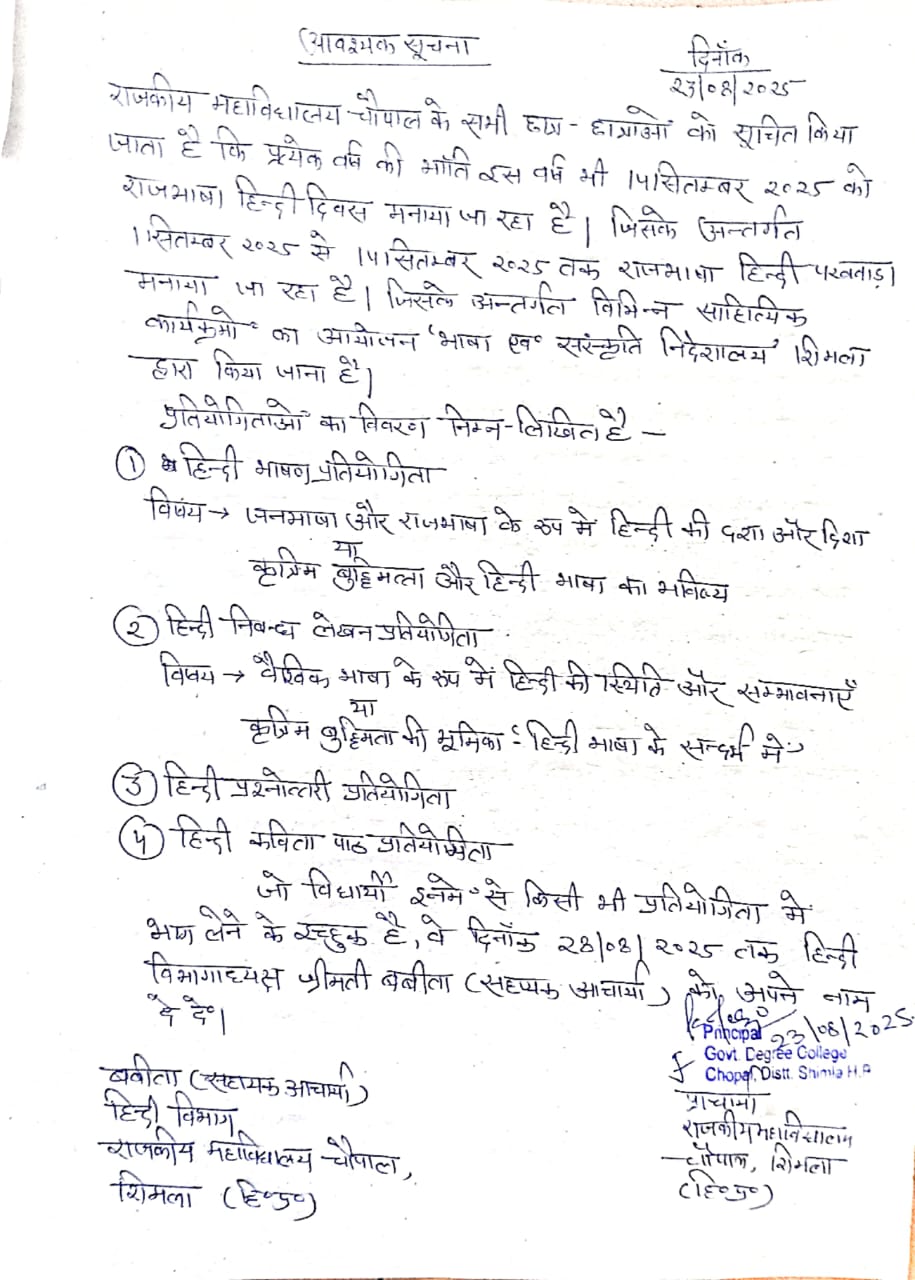 आवश्यक सूचना
दिनाँक
23/08/2025
राजकीय महाविद्यालय चौपाल के सभी छात्र - छात्राओं को सूचित किया
जाता है कि प्रत्येक वर्ष की भाँति इस वर्ष भी 14 सितम्बर 2025 को
राजभाषा हिन्दी दिवस मनाया जा रहा है। जिसके अन्तर्गत
1 सितम्बर 2025 से 14 सितम्बर 2025 तक राजभाषा हिन्दी पखवाड़ा
मनाया जा रहा है। जिसके अन्तर्गत विभिन्न साहित्यिक
कार्यक्रमों का आयोजन 'भाषा एवं संस्कृति निदेशालय' शिमला
द्वारा किया जाना है।
प्रतियोगिताओं का विवरण निम्न-लिखित है –
① हिन्दी भाषण प्रतियोगिता
विषय → जनभाषा और राजभाषा के रूप में हिन्दी की दशा और दिशा
या
कृत्रिम बुद्धिमत्ता और हिन्दी भाषा का भविष्य
② हिन्दी निबन्ध लेखन प्रतियोगिता
विषय → वैश्विक भाषा के रूप में हिन्दी की स्थिति और सम्भावनाएँ
या
कृत्रिम बुद्धिमता की भूमिका : हिन्दी भाषा के सन्दर्भ में
③ हिन्दी प्रश्नोत्तरी प्रतियोगिता
④ हिन्दी कविता पाठ प्रतियोगिता
जो विद्यार्थी इनमें से किसी भी प्रतियोगिता में
भाग लेने के इच्छुक है, वे दिनाँक 28/08/2025 तक हिन्दी
विभागाध्यक्ष श्रीमती बबीता (सहायक आचार्या) को अपने नाम
दे दें।
23/08/2025
Principal
Govt. Degree College
Chopal, Distt. Shimla H.P
बबीता (सहायक आचार्या)
हिन्दी विभाग
राजकीय महाविद्यालय चौपाल,
शिमला (हि॰प्र॰)
प्राचार्या
राजकीय महाविद्यालय
चौपाल, शिमला
(हि॰प्र॰)